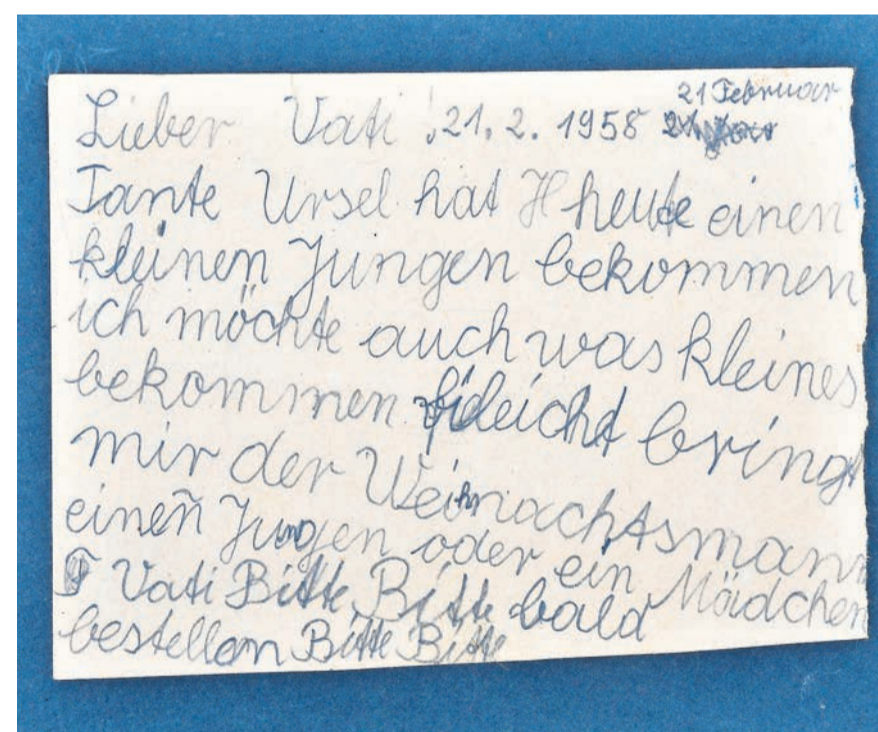 21 Februar
Lieber Vati! 21. 2. 1958
Tante Ursel hat H heute einen
kleinen Jungen bekommen
ich möchte auch was kleines
bekommen fileicht bringt
mir der Weihnachtsmann
einen Jungen oder ein Mädchen
Vati Bitte Bitte bald
bestellen Bitte Bitte